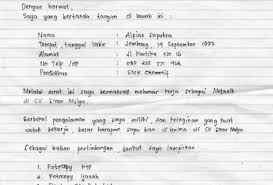 Dengan hormat,
Saya yang bertanda tangan di bawah ini :
Nama : Alpino Saputra
Tempat, tanggal lahir : Jombang, 14 September 1995
Alamat : Jl Kartika No 16
No Telp / HP : 085 635 771 466
Pendidikan : SMK Otomotif
Melalui surat ini saya bermaksud melamar kerja sebagai Mekanik
di CV Sinar Mulya.
Berbekal pengalaman yang saya miliki dan keinginan yang kuat
untuk bekerja, besar harapan saya bisa diterima di CV Sinar Mulya.
Sebagai bahan pertimbangan, berikut saya lampirkan :
1. Fotocopy KTP
2. Fotocopy Ijazah